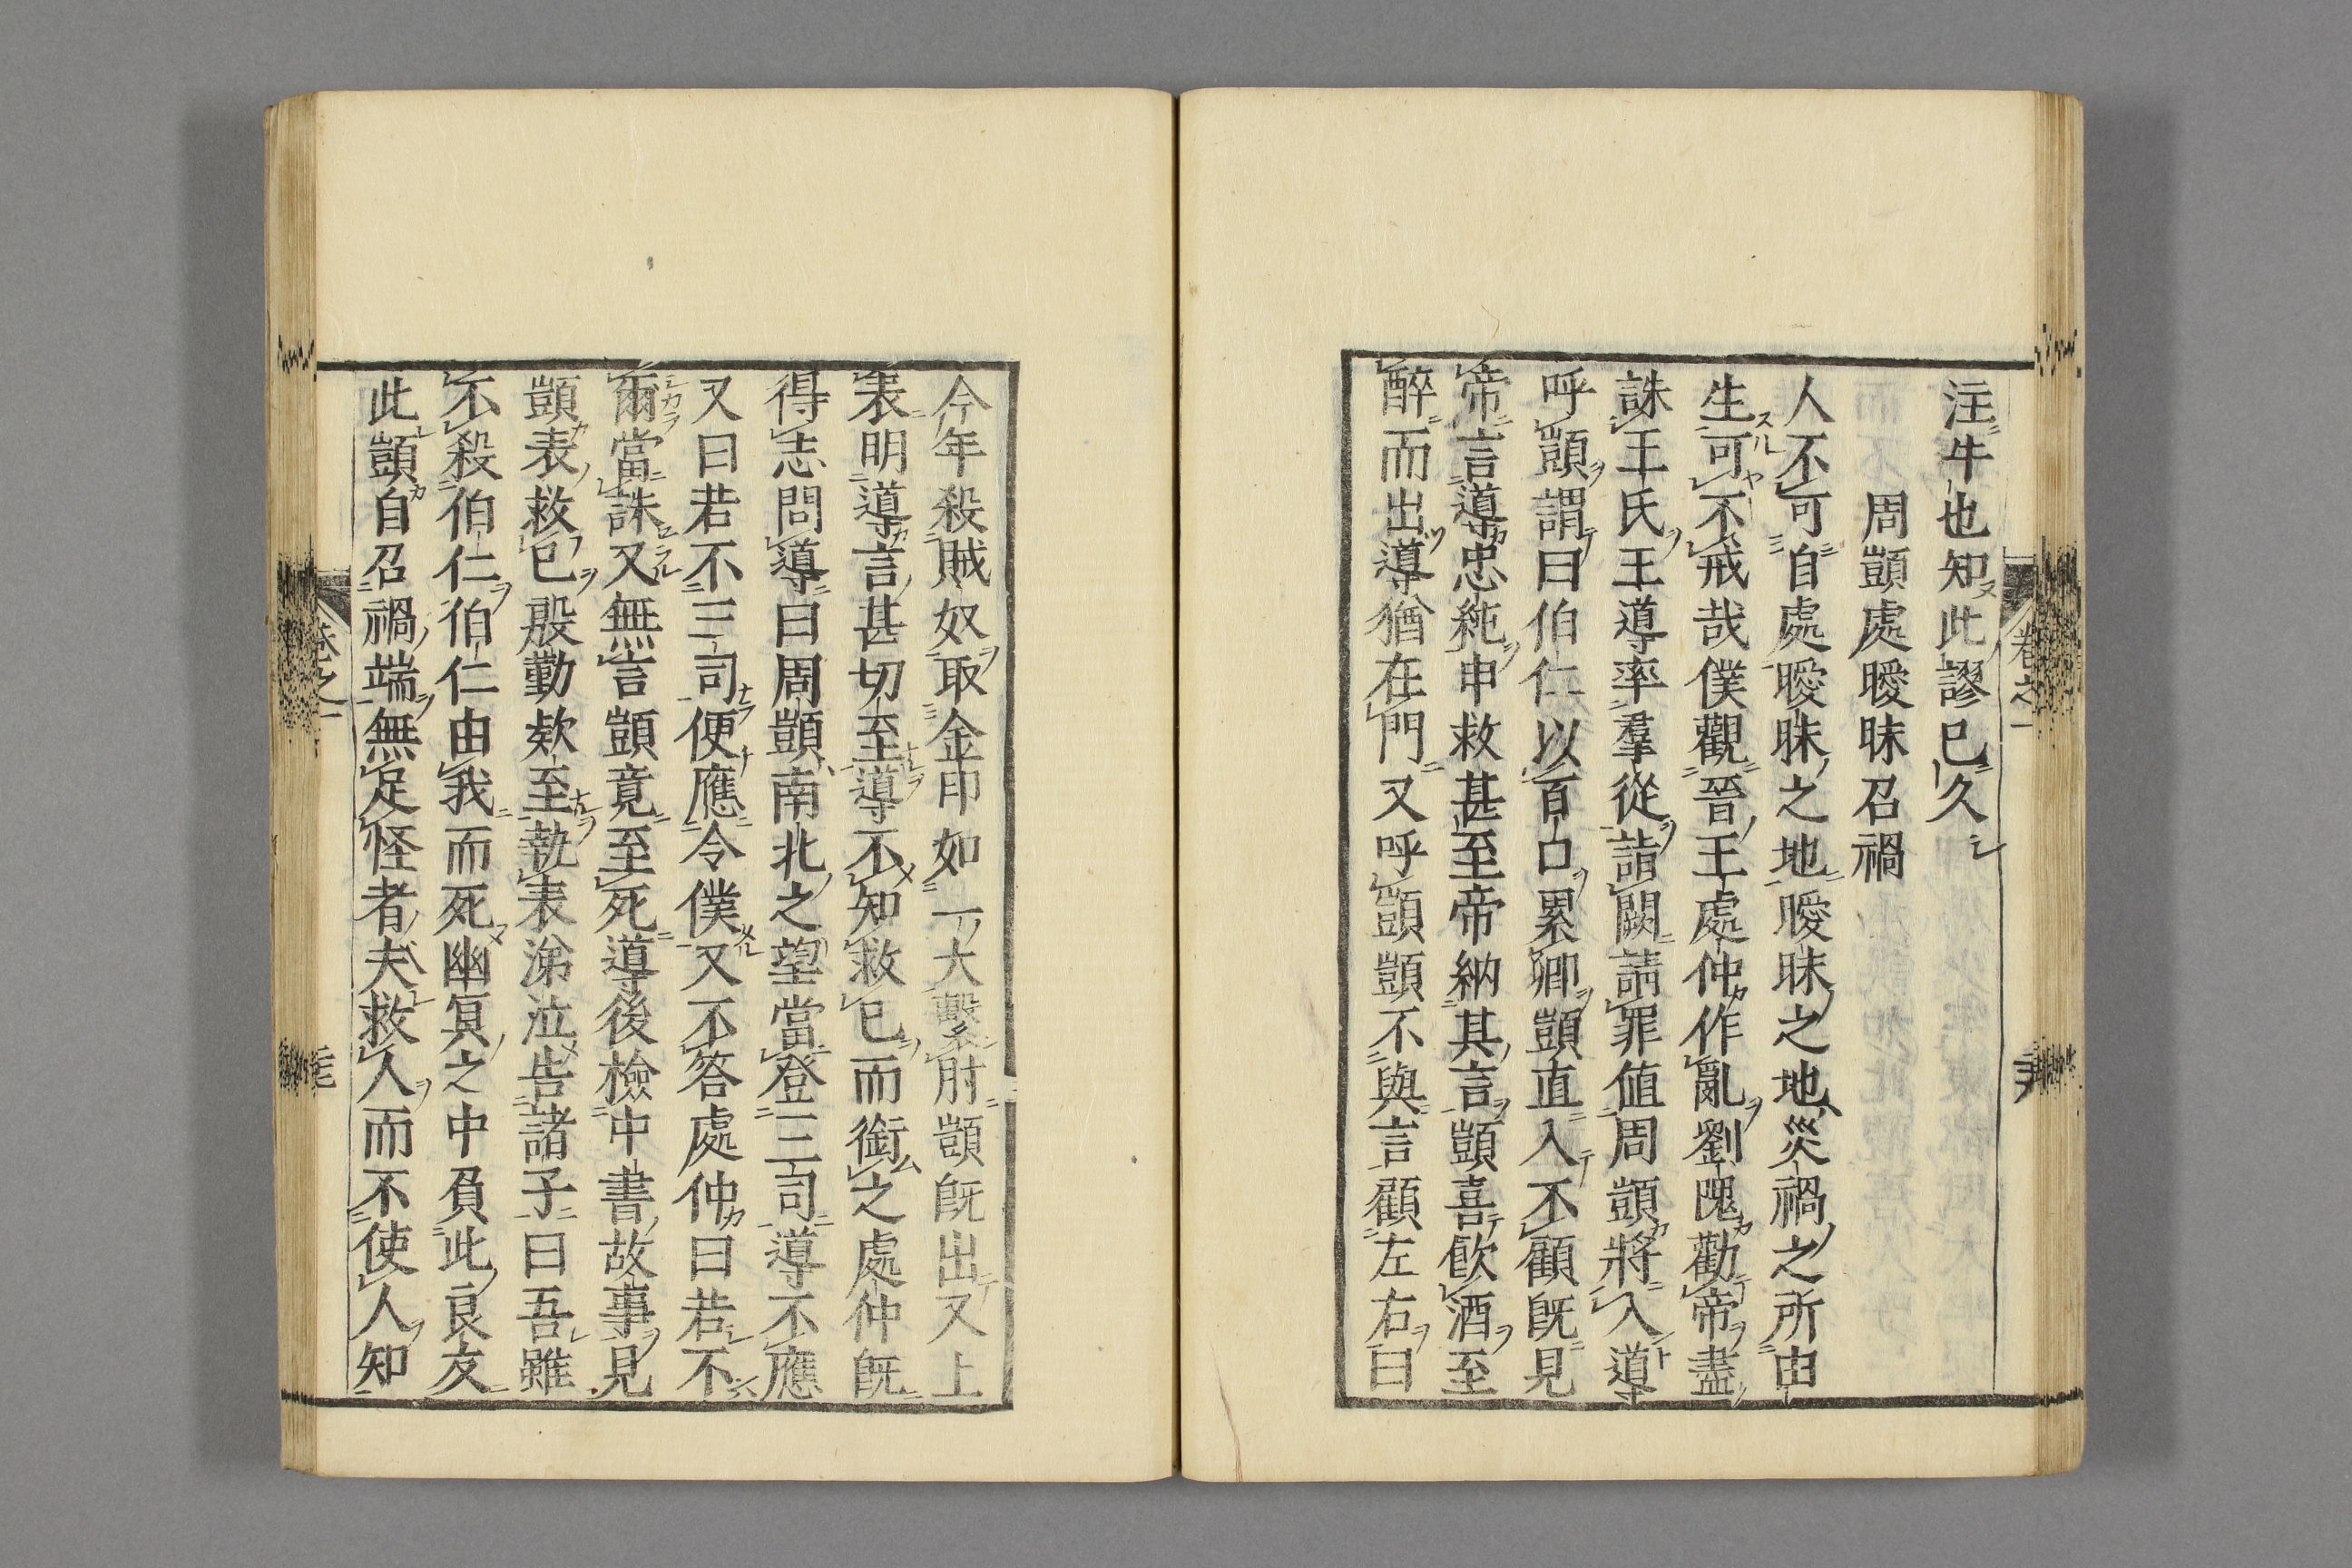 注牛也知此謬已久
周顗處曖昧召禍
人不可自處曖昧之地曖昧之地災禍之所由
生可不戒哉僕觀晉王處仲作亂劉隗勸帝盡
誅王氏王導率羣從詣闕請罪值周顗將入導
呼顗謂曰伯仁以百口累卿顗直入不顧既見
帝言導忠純申救甚至帝納其言顗喜飲酒至
醉而出導猶在門又呼顗顗不與言顧左右曰
今年殺賊奴取金印如一大繫肘顗既出又上
表明導言甚切至導不知救已而銜之處仲既
得志問導曰周顗南北之望當登三司導不應
又曰若不三司便應令僕又不答處仲曰若不
爾當誅又無言顗竟至死導後檢中書故事見
顗表救已殷勤欵至執表涕泣告諸子曰吾雖
不殺伯仁伯仁由我而死幽冥之中負此良友
此顗自召禍端無足怪者夫救人而不使人知
卷之一
卷之一